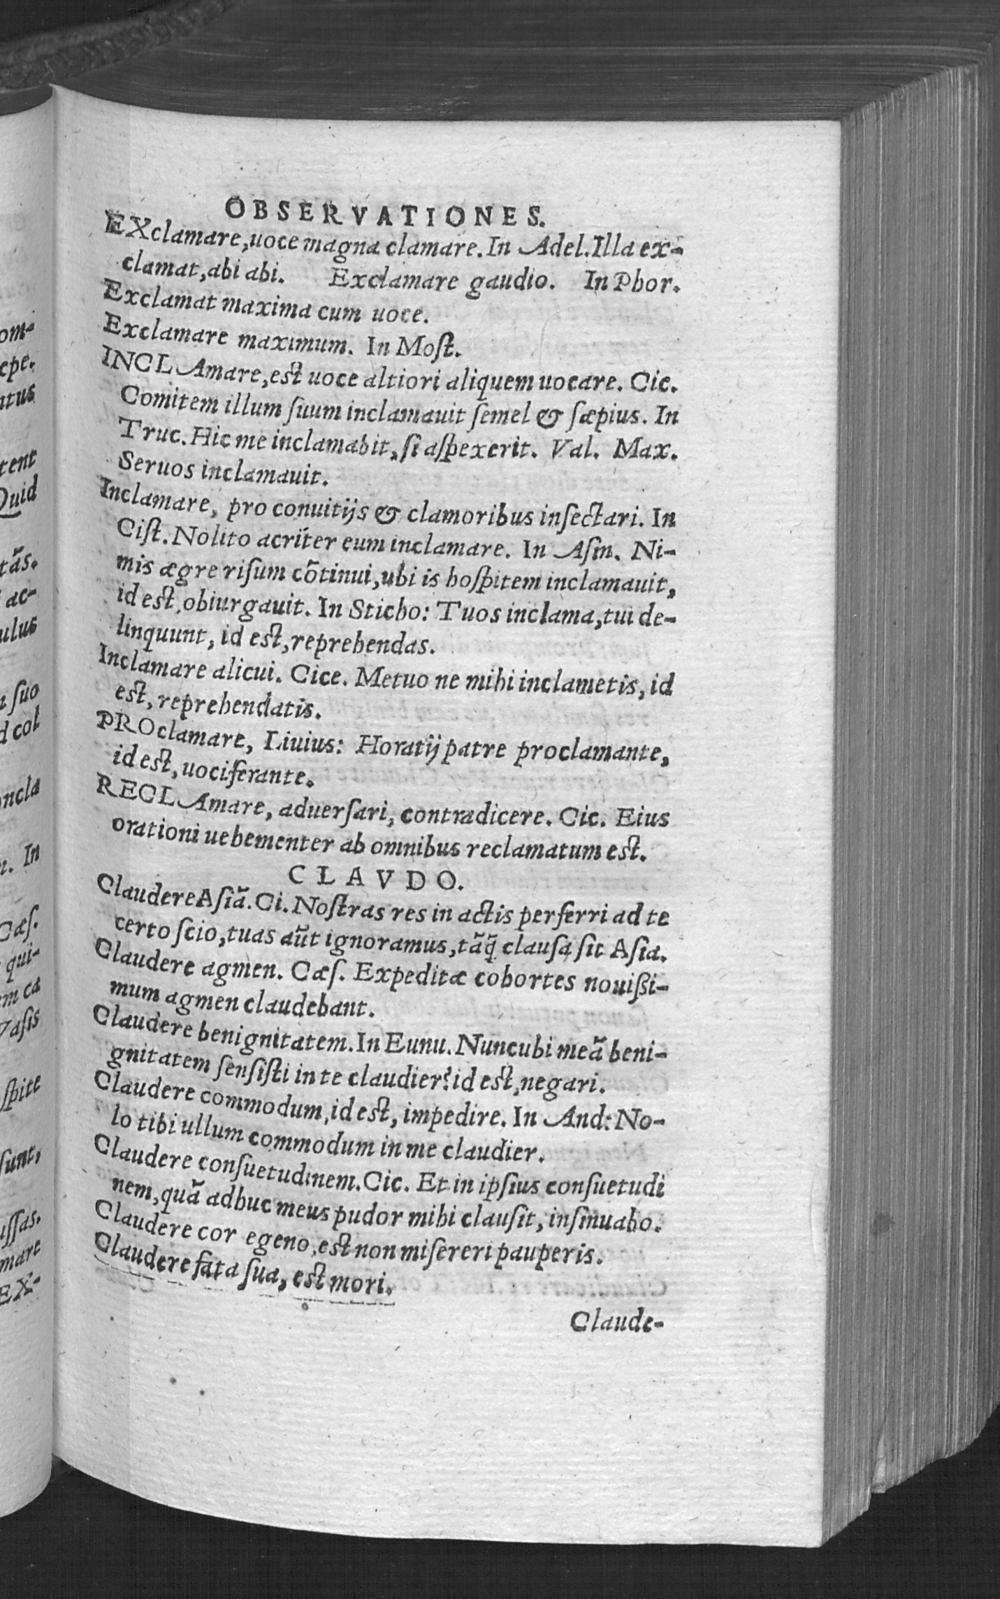 OBSERVATIONES.
EXclamare, uoce magna clamare. In Adel. Illa ex-
clamat, abi abi. Exclamare gaudio. In Phor.
Exclamat maxima cum uoce.
Exclamare maximum. In Most.
INCLAmare, est uoce altiori aliquem uocare. Cic.
Comitem illum suum inclamauit semel & sæpius. In
Truc. Hic me inclamabit, si aspexerit. Val. Max.
Seruos inclamauit.
Inclamare, pro conuitijs & clamoribus insectari. In
Cist. Nolito acriter eum inclamare. In Asin. Ni-
mis ægre risum cõtinui, ubi is hospitem inclamauit,
id est, obiurgauit. In Sticho: Tuos inclama, tui de-
linquunt, id est, reprehendas.
Inclamare alicui. Cice. Metuo ne mihi inclametis, id
est, reprehendatis.
PROclamare, Liuius: Horatij patre proclamante,
id est, uociferante.
RECLAmare, aduersari, contradicere. Cic. Eius
orationi uehementer ab omnibus reclamatum est.
CLAVDO.
Claudere Asiã. Ci. Nostras res in actis perferri ad te
certo scio, tuas aũt ignoramus, tãq̃ clausa sit Asia.
Claudere agmen. Cæs. Expeditæ cohortes nouissi-
mum agmen claudebant.
Claudere benignitatem. In Eunu. Nuncubi meã beni-
gnitatem sensisti in te claudier? id est, negari.
Claudere commodum, id est, impedire. In And: No-
lo tibi ullum commodum in me claudier.
Claudere consuetudinem. Cic. Et in ipsius consuetudi
nem, quã adhuc meus pudor mihi clausit, insinuabo.
Claudere cor egeno, est non misereri pauperis.
Claudere fata sua, est mori.
Claude-
om-
epe.
atus
tent
Quid
tãs.
ac-
ulus
suo
d col
oncla
In
Cæs.
qui-
em ca
Vasis
spite
sunt,
ussas.
mare
EX-